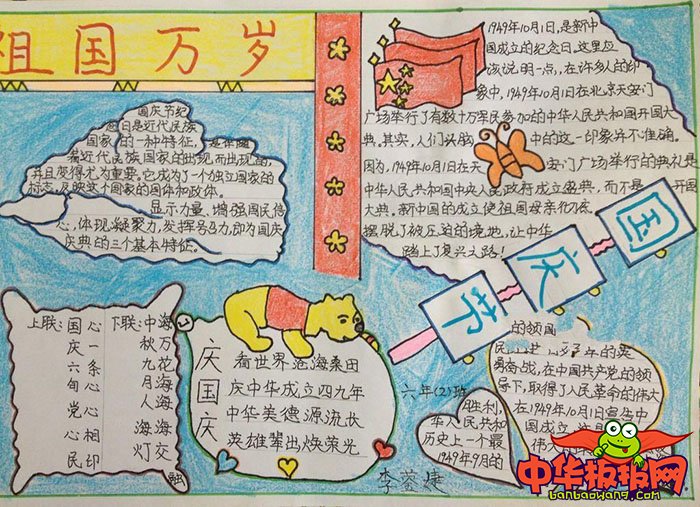 祖国万岁
国庆节纪
念日是近代民族
国家的一种特征,是伴随
着近代民族国家的出现而出现的,
并且变得尤为重要。它成为了一个独立国家的
标志,反映这个国家的国体和政体。
显示力量、增强国民信
心,体现凝聚力,发挥号召力,即为国庆
庆典的三个基本特征。
1949年10月1日,是新中
国成立的纪念日,这里应
该说明一点,在许多人的印
象中,1949年10月1日在北京天安门
广场举行了有数十万军民参加的中华人民共和国开国大
典。其实,人们头脑中的这一印象并不准确。
因为,1949年10月1日在天安门广场举行的典礼是
中华人民共和国中央人民政府成立盛典,而不是开国
大典。新中国的成立使祖国母亲彻底
摆脱了被压迫的境地,让中华
踏上了复兴之路!
国庆节
上联:国心 下联:中海
庆一 秋万
六条 九花
旬心 月海
党心 人海
心相 海海
民印 灯交
融
庆国庆
看世界沧海桑田
庆中华成立四九年
中华美德源流长
英雄辈出焕荣光
六年(2)班
李蓥婕
胜利,
华人民共和
历史上一个最
1949年9月的
的领国
勇奋战,在中国共产党的领
导下,取得了人民革命的伟大
在1949年10月1日宣告中
国成立,这
伟大
中华板报网
banbaowang.com